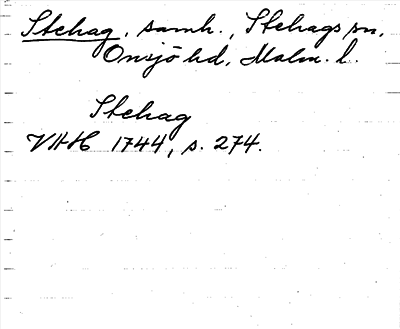 Stehag, samh., Stehags sn,
Onsjö hd, Malm. l.
Stehag
VHH 1744, s. 274.